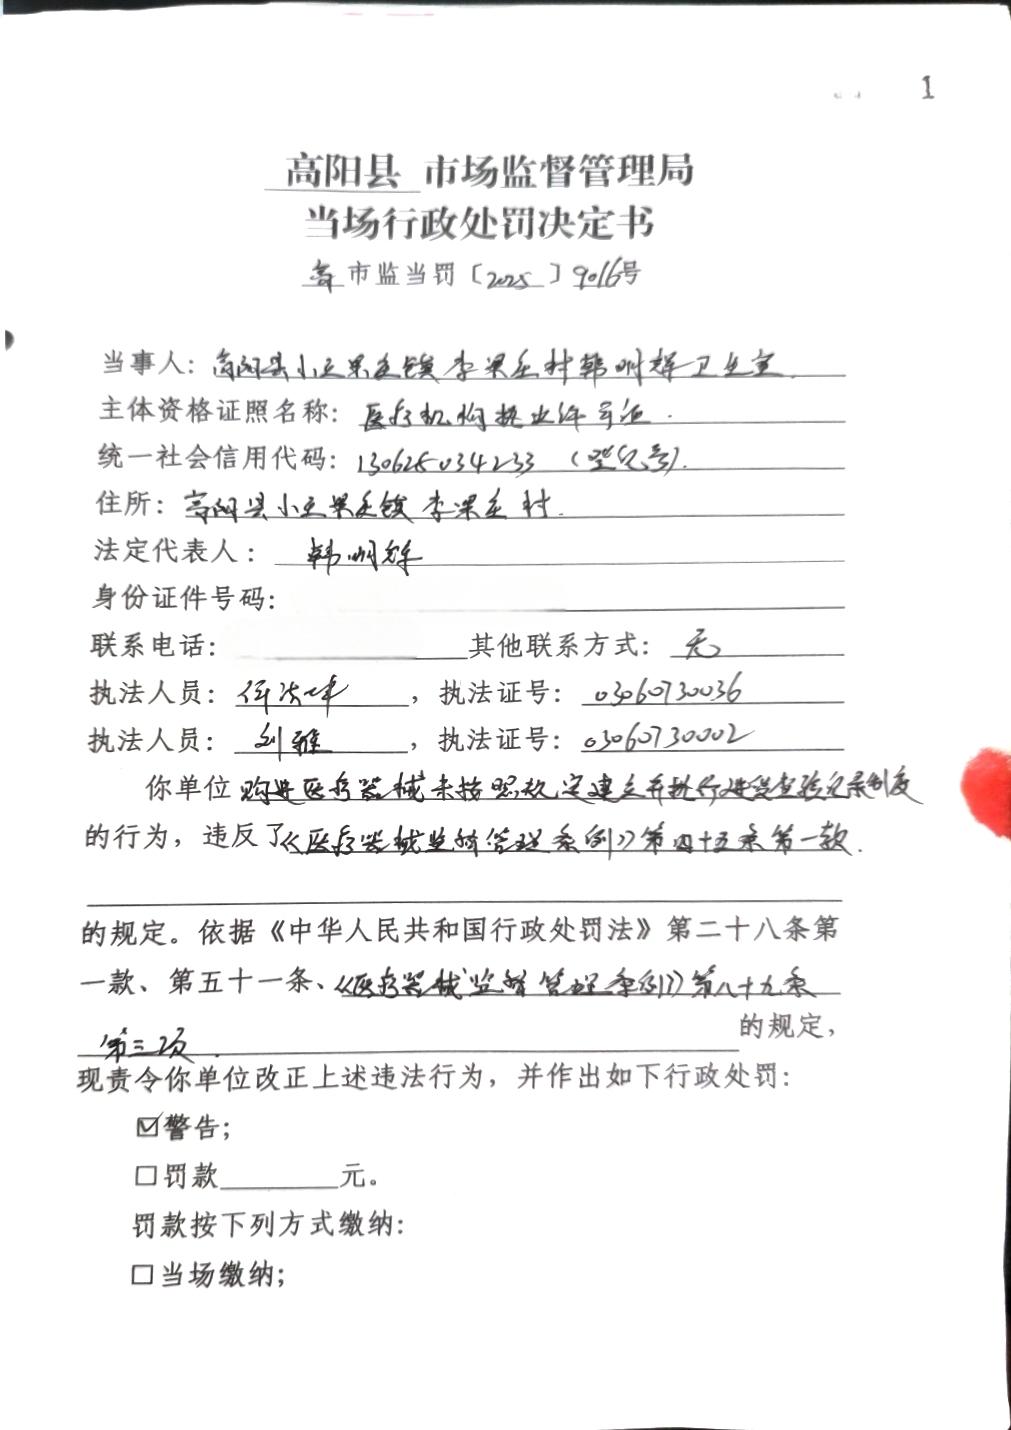 1
高阳县 市场监督管理局
当场行政处罚决定书
高市监当罚〔2025〕9016号
当事人：高阳县小王果庄镇李果庄村韩明辉卫生室
主体资格证照名称：医疗机构执业许可证
统一社会信用代码：130625034233（登记号）
住所：高阳县小王果庄镇李果庄村
法定代表人：韩明辉
身份证件号码：
联系电话： 其他联系方式：无
执法人员： ，执法证号：03060730036
执法人员：刘雅，执法证号：03060730002
你单位购进医疗器械未按照规定建立并执行进货查验记录制度
的行为，违反了《医疗器械监督管理条例》第四十五条第一款
的规定。依据《中华人民共和国行政处罚法》第二十八条第
一款、第五十一条、《医疗器械监督管理条例》第八十九条
第三项 的规定，
现责令你单位改正上述违法行为，并作出如下行政处罚：
☑警告；
□罚款 元。
罚款按下列方式缴纳：
□当场缴纳；